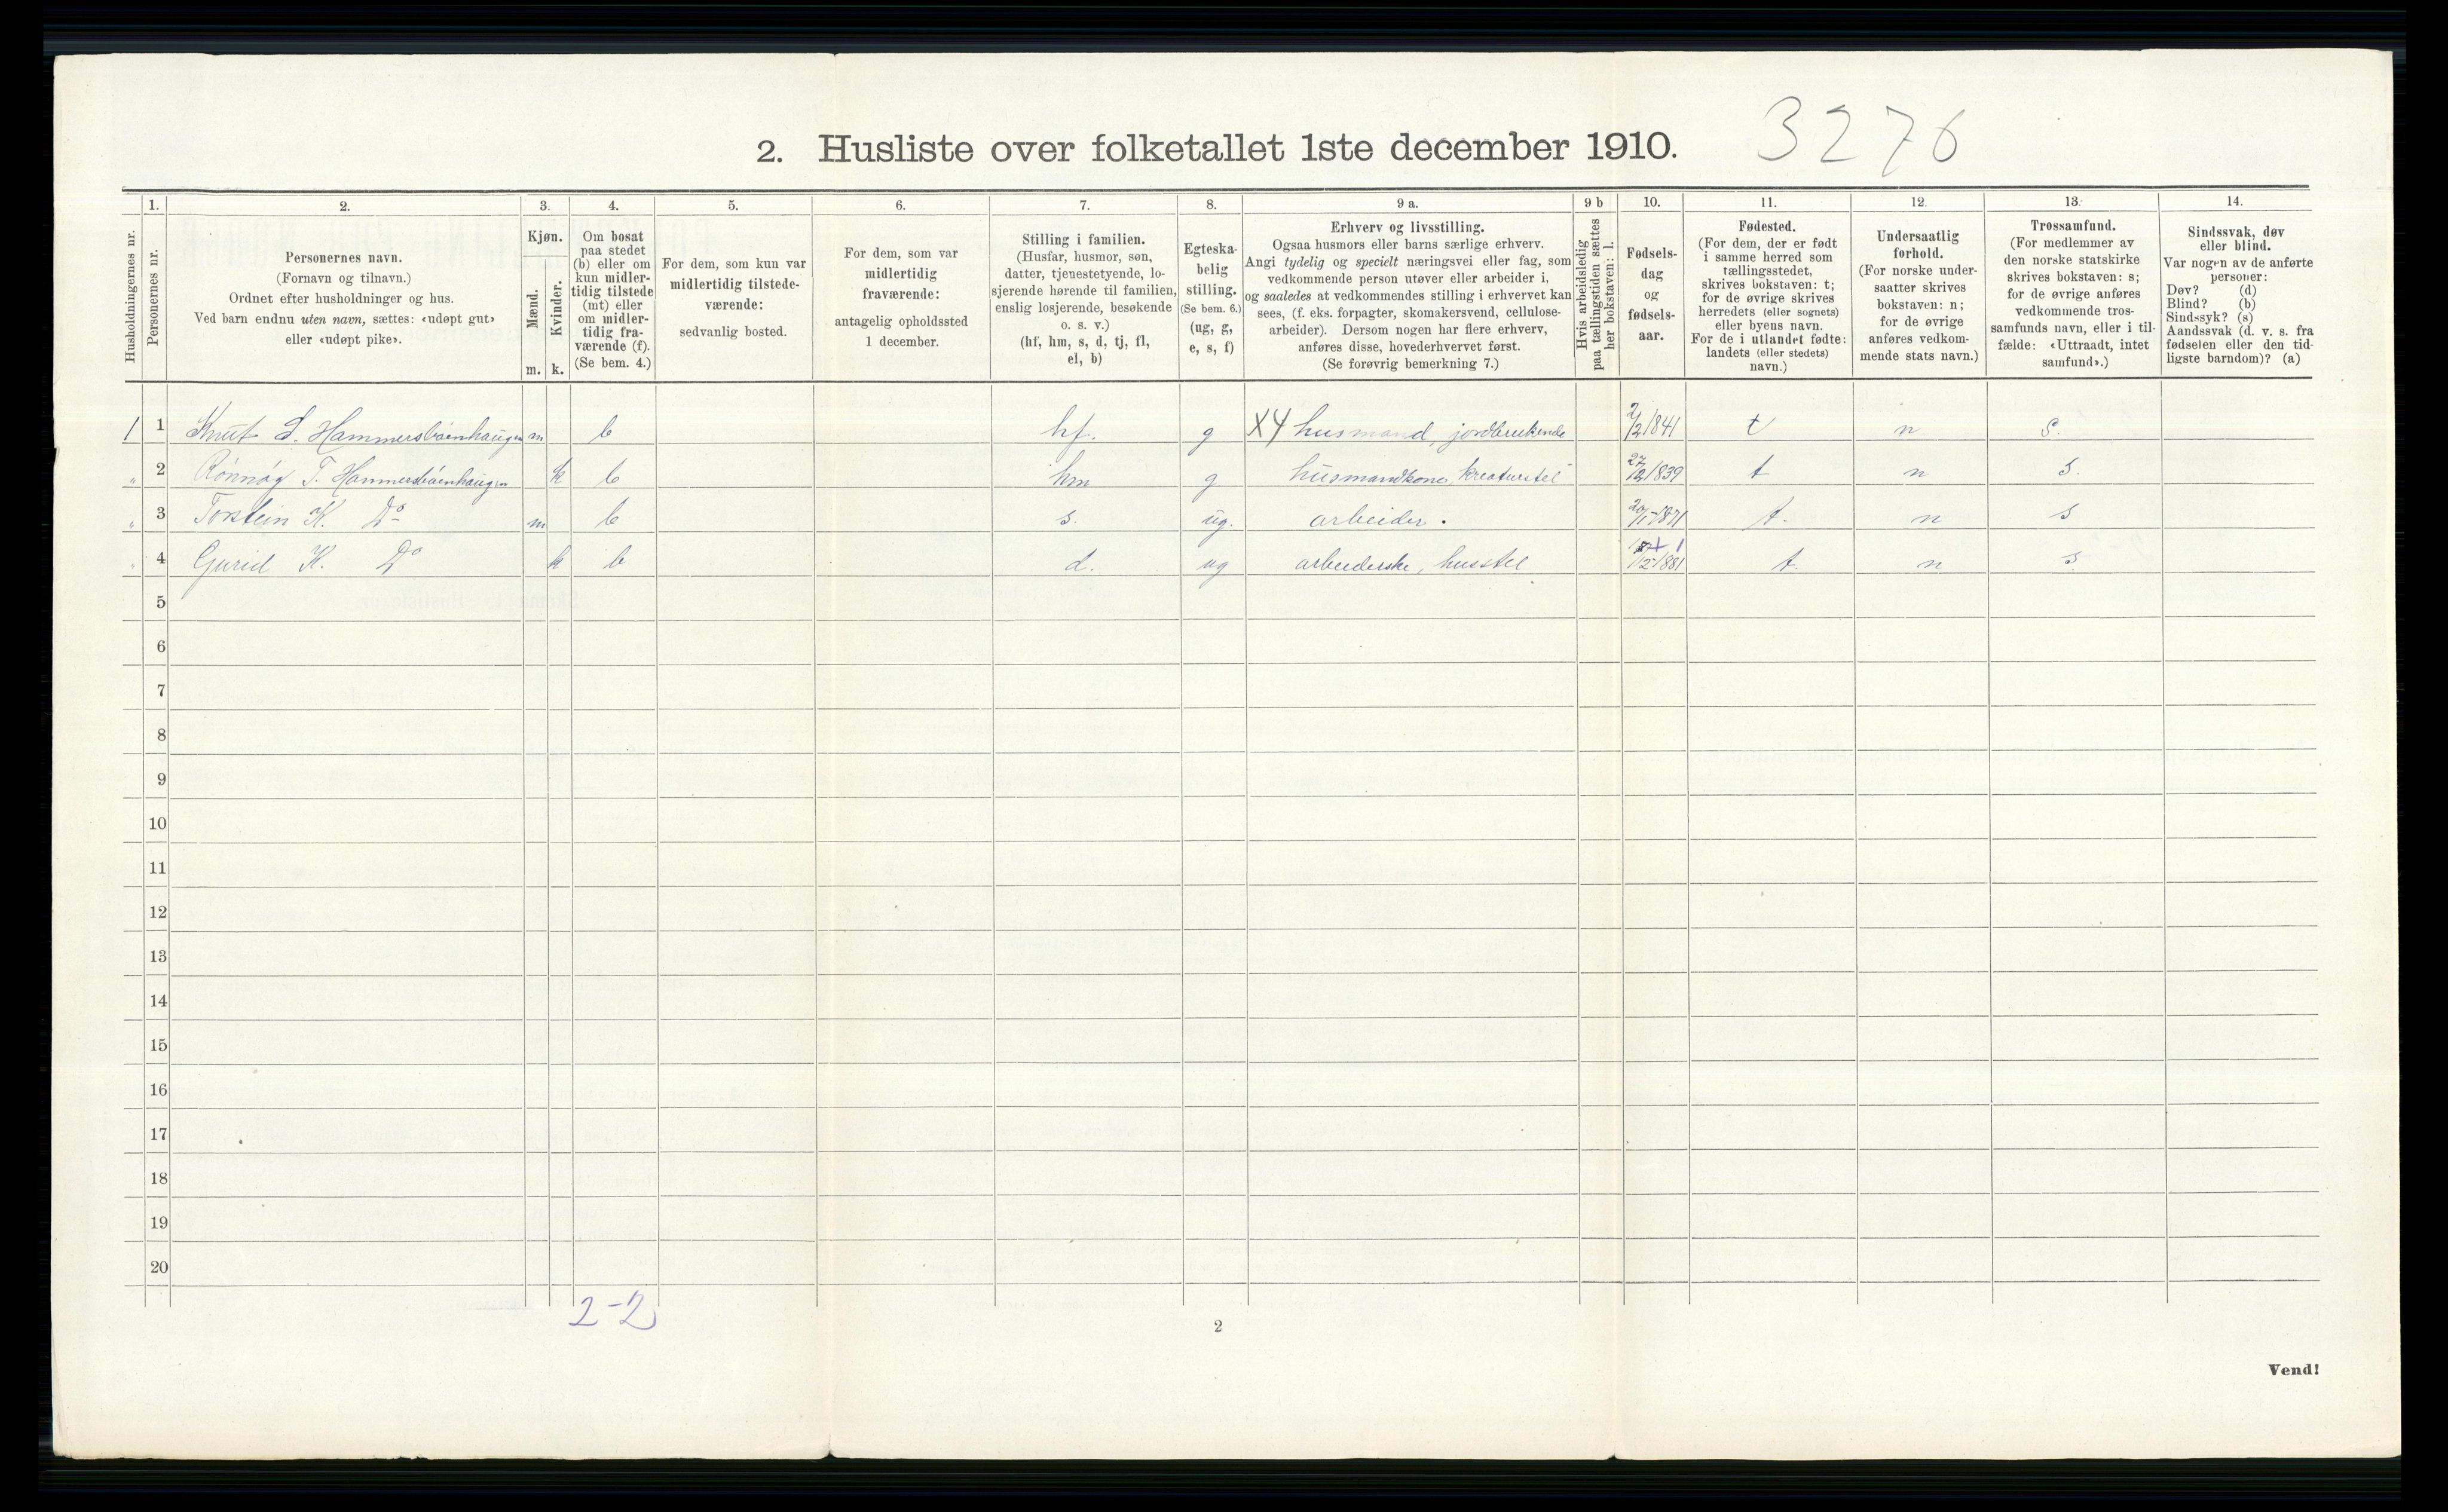 2. Husliste over folketallet 1ste december 1910. 3276
Husholdningernes nr.
1.
Personernes nr.
2.
Personernes navn.
(Fornavn og tilnavn.)
Ordnet efter husholdninger og hus.
Ved barn endnu uten navn, sættes: «udøpt gut»
eller «udøpt pike».
3.
Kjøn.
Mænd.
Kvinder.
m. k.
4.
Om bosat
paa stedet
(b) eller om
kun midler-
tidig tilstede
(mt) eller
om midler-
tidig fra-
værende (f).
(Se bem. 4.)
5.
For dem, som kun var
midlertidig tilstede-
værende:
sedvanlig bosted.
6.
For dem, som var
midlertidig
fraværende:
antagelig opholdssted
1 december.
7.
Stilling i familien.
(Husfar, husmor, søn,
datter, tjenestetyende, lo-
sjerende hørende til familien,
enslig losjerende, besøkende
o. s. v.)
(hf, hm, s, d, tj, fl,
el, b)
8.
Egteska-
belig
stilling.
(Se bem. 6.)
(ug, g,
e, s, f)
9 a.
Erhverv og livsstilling.
Ogsaa husmors eller barns særlige erhverv.
Angi tydelig og specielt næringsvei eller fag, som
vedkommende person utøver eller arbeider i,
og saaledes at vedkommendes stilling i erhvervet kan
sees, (f. eks. forpagter, skomakersvend, cellulose-
arbeider). Dersom nogen har flere erhverv,
anføres disse, hovederhvervet først.
(Se forøvrig bemerkning 7.)
9 b
Hvis arbeidsledig
paa tællingstiden sættes
her bokstaven: l.
10.
Fødsels-
dag
og
fødsels-
aar.
11.
Fødested.
(For dem, der er født
i samme herred som
tællingsstedet,
skrives bokstaven: t;
for de øvrige skrives
herredets (eller sognets)
eller byens navn.
For de i utlandet fødte:
landets (eller stedets)
navn.)
12.
Undersaatlig
forhold.
(For norske under-
saatter skrives
bokstaven: n;
for de øvrige
anføres vedkom-
mende stats navn.)
13.
Trossamfund.
(For medlemmer av
den norske statskirke
skrives bokstaven: s;
for de øvrige anføres
vedkommende tros-
samfunds navn, eller i til-
fælde: «Uttraadt, intet
samfund».)
14.
Sindssvak, døv
eller blind.
Var nogen av de anførte
personer:
Døv? (d)
Blind? (b)
Sindssyk? (s)
Aandssvak (d. v. s. fra
fødselen eller den tid-
ligste barndom)? (a)
1 1 Knut S. Hammersbøenhaugen m b hf. g X4 husmand, jordbrukende 2/2 1841 t n s.
" 2 Rønnøg T. Hammersbøenhaugen k b hm g husmandkone, kreaturstel 27/12 1839 t n s.
" 3 Torstein K. Do m b s. ug. arbeider. 1871 t. n s
" 4 Gurid K. Do k b d. ug arbeiderske, husstel 1881 t. n s
5
6
7
8
9
10
11
12
13
14
15
16
17
18
19
20
2-2
2
Vend!